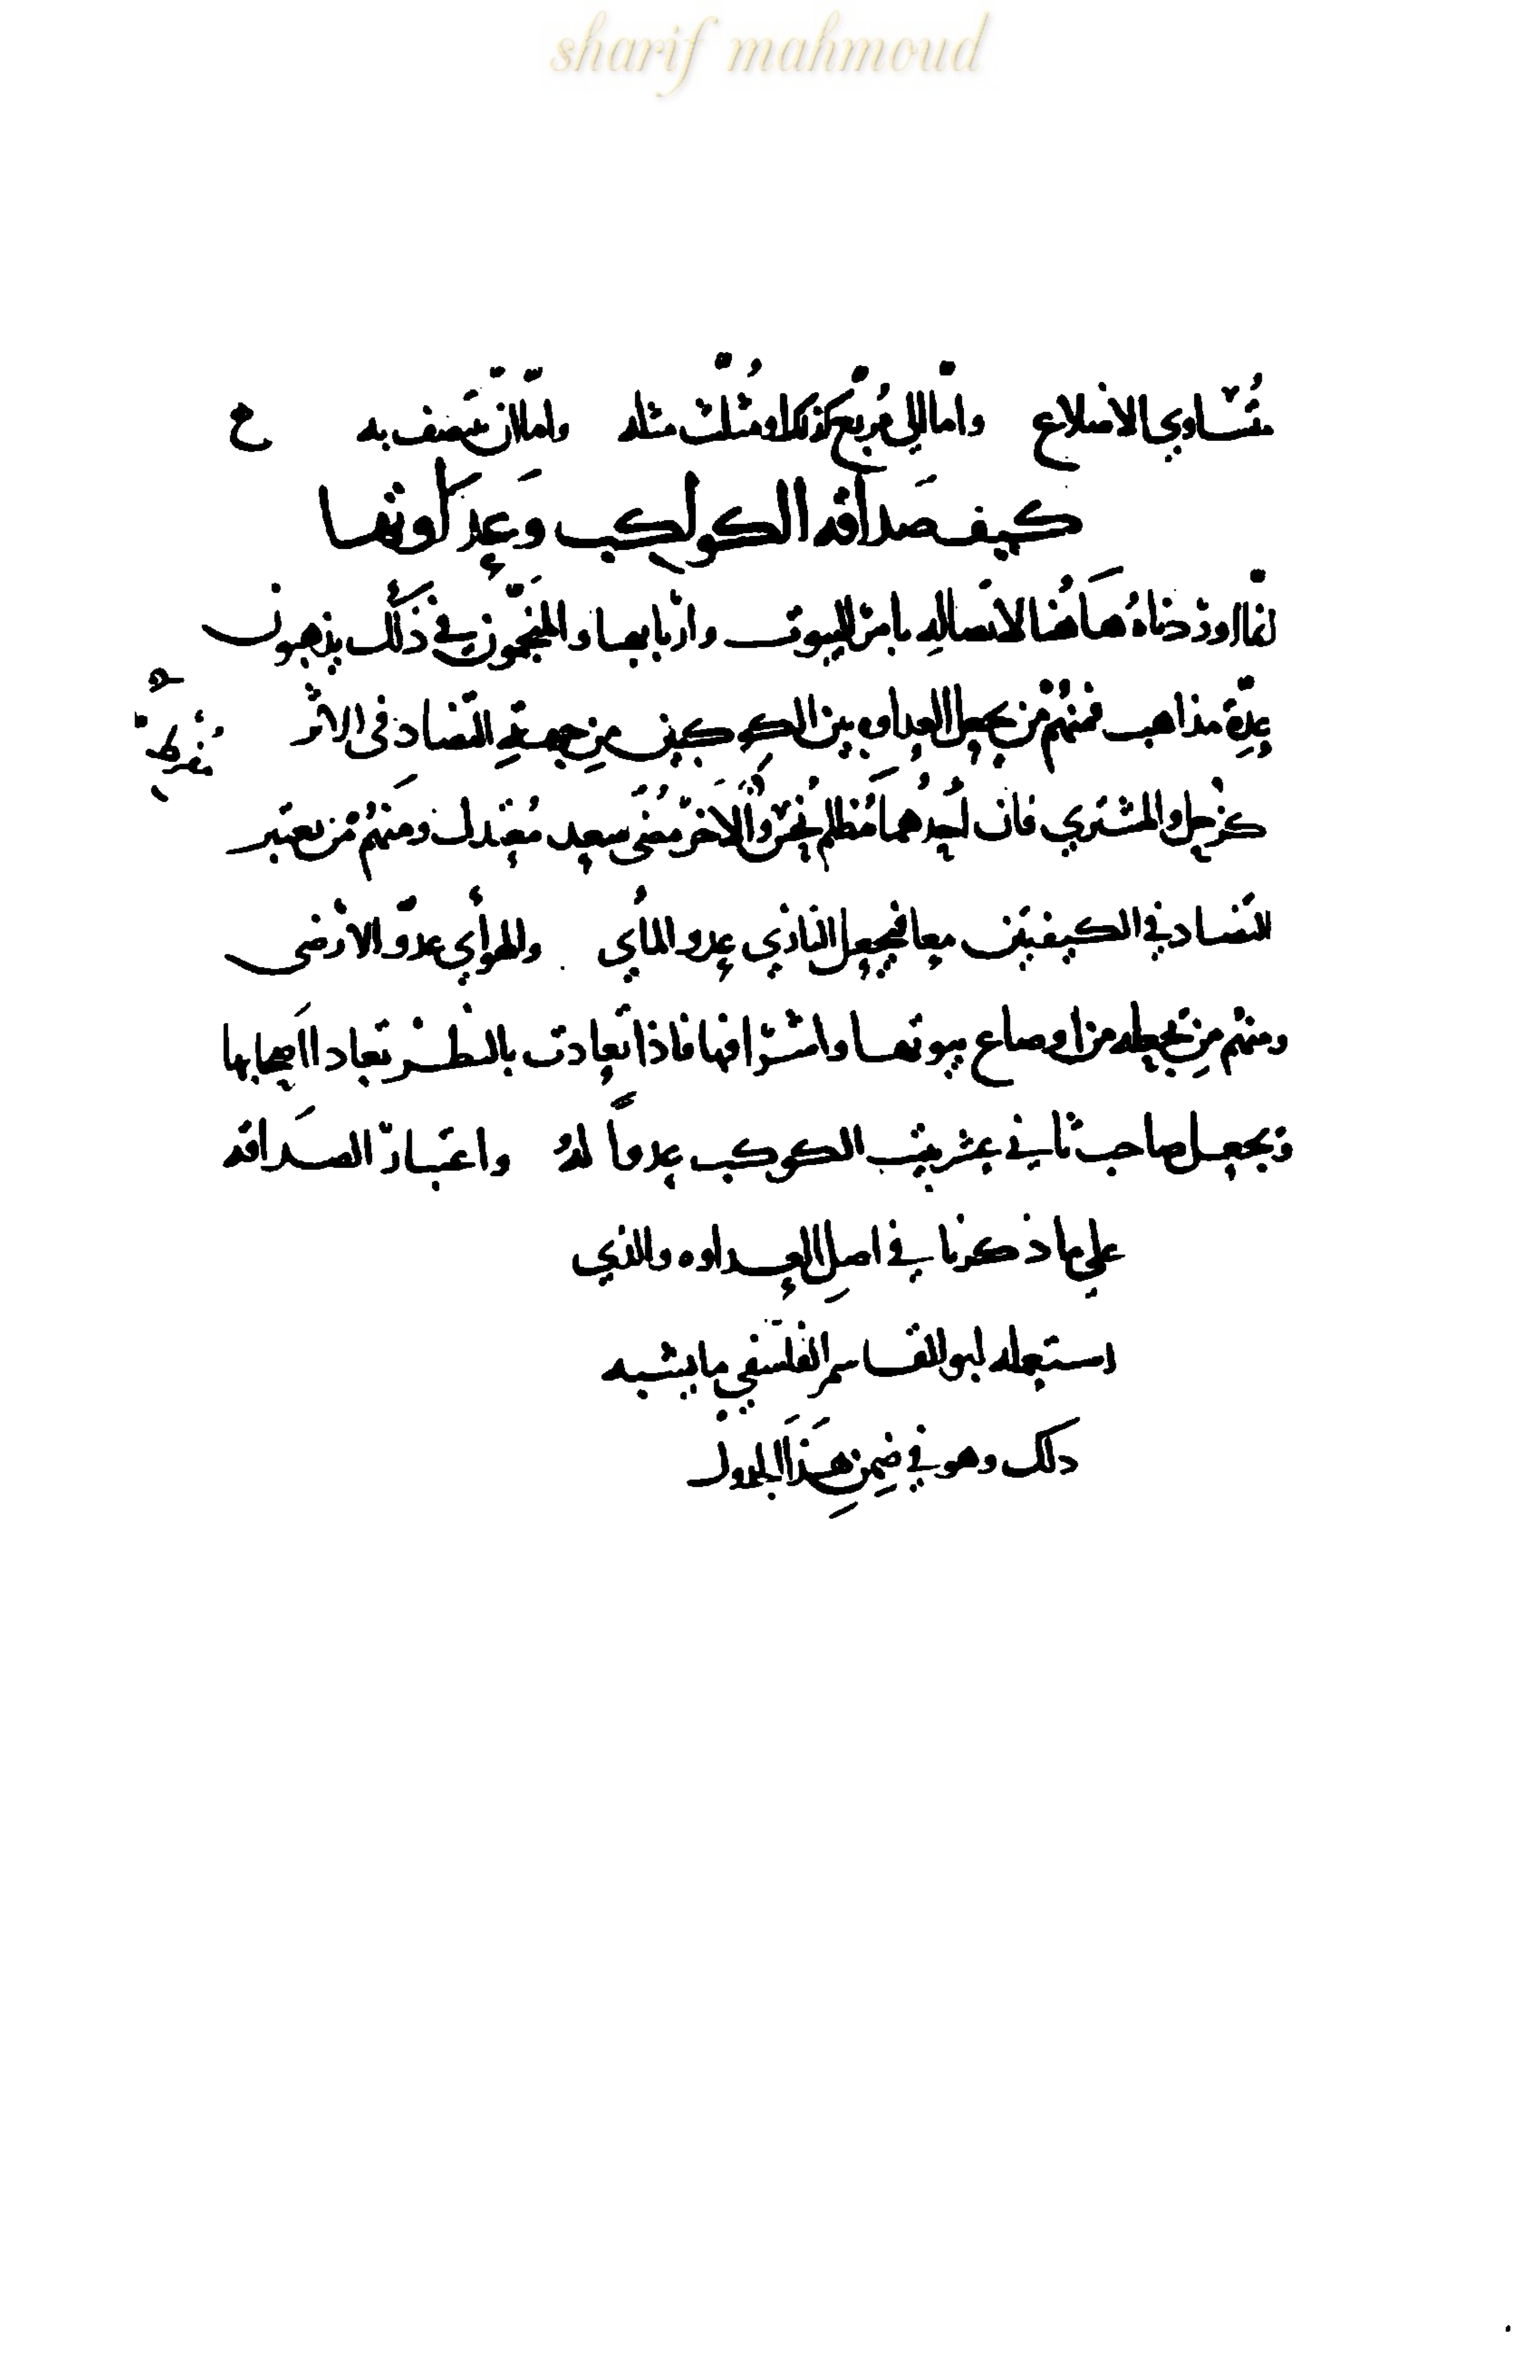 sharif mahmoud
متساوي الاضلاع واما الى مربع كذلك او مثلث مثله واما لان يتصف به ع
كيف صداقة الكواكب وعداوتها
انما اوردناه هاهنا لاتصاله بامر البيوت واربابها والمنجمون في ذلك يذهبون
عدة مذاهب فمنهم من يجعل العداوة بين الكوكبين من جهة التضاد في الاثر
كزحل والمشتري فان احدهما مظلم نحس والاخر مضى سعيد معتدل ومنهم من يعتبر
التضاد في الكيفيتين معا فيجعل الناري عدو المأي والهوأي عدو الارضى
ومنهم من يجعله من اوضاع بيوتها واشرافها فاذا تعادت بالنظر تعادا اصحابها
ويجعل صاحب ثاني عشر بيت الكوكب عدوا له واعتبار الصداقه
على ما ذكرنا في اصل العداوه والذي
يستعمله ابو القاسم الفلسفي ما يشبه
ذلك وهو في ضمن هذا الجدول